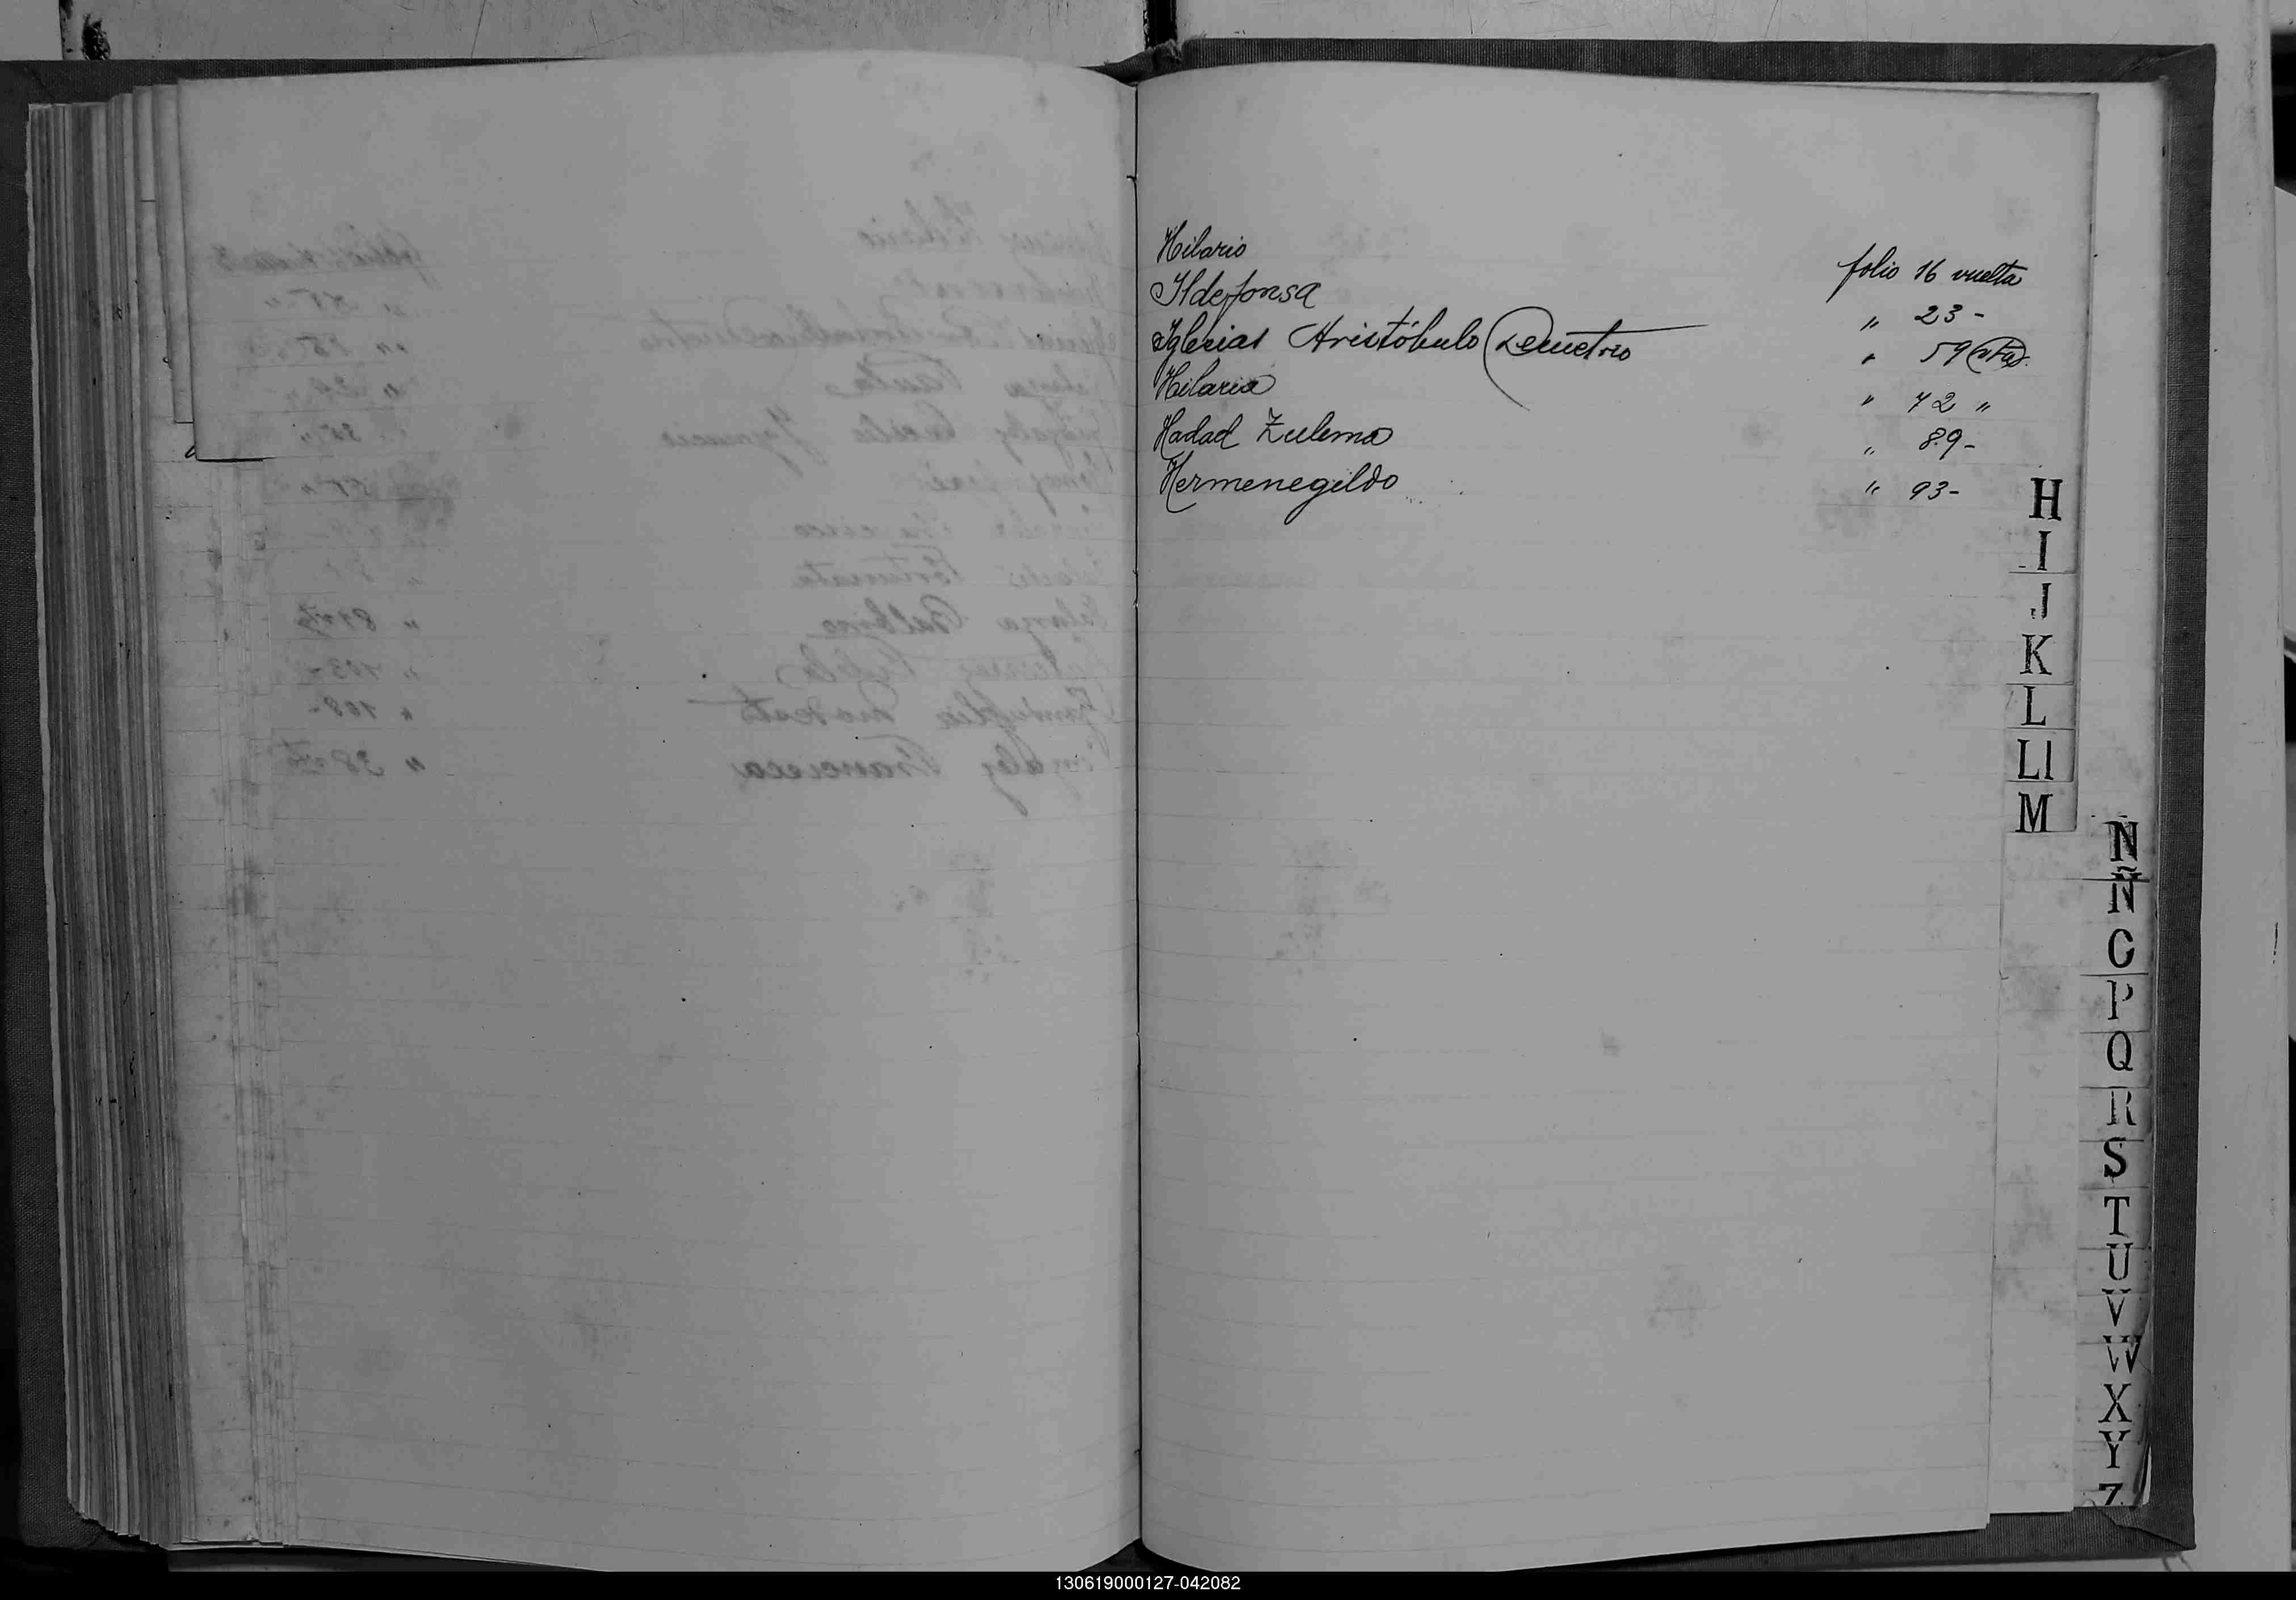 Hilario folio 16 vuelta
Ildefonsa " 23 -
Iglesias Aristóbulo Demetrio " 59 vta.
Hilaria " 72 "
Hadad Zulema " 89 -
Hermenegildo " 93 -
H
I
J
K
L
Ll
M
N
Ñ
O
P
Q
R
S
T
U
V
W
X
Y
Z
130619000127-042082